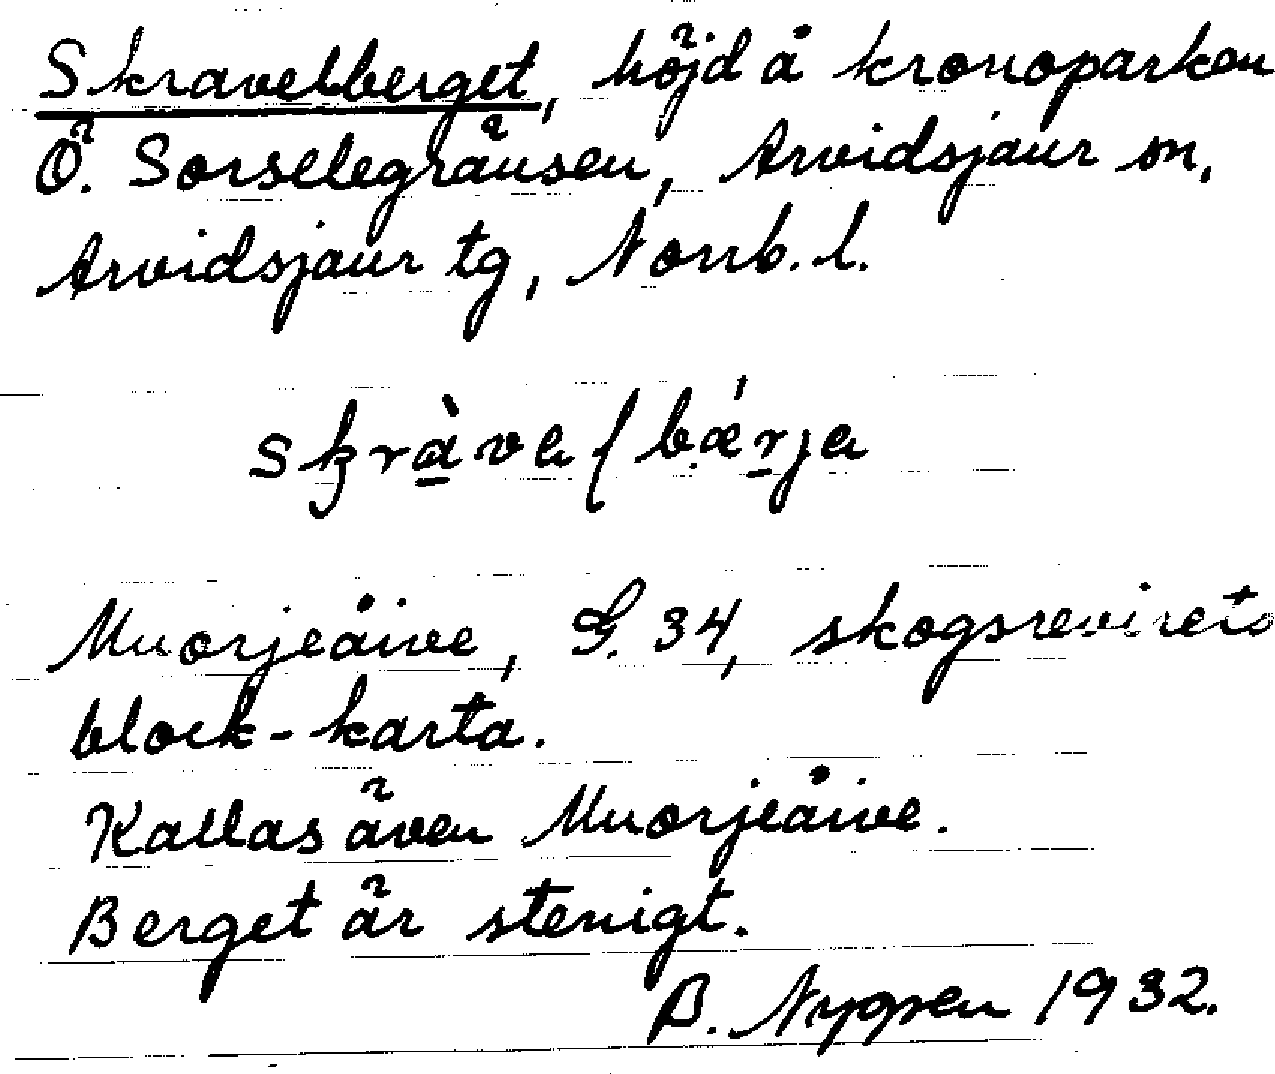 Skravelberget, höjd å kronoparken
Ö. Sorselegränsen, Arvidsjaur sn,
Arvidsjaur tg, Norrb. l.
skràve/bǽrje
Muorjeåive, G. 34, skogsrevirets
block-karta.
Kallas även Muorjeåive.
Berget är stenigt.
B. Nygren 1932.